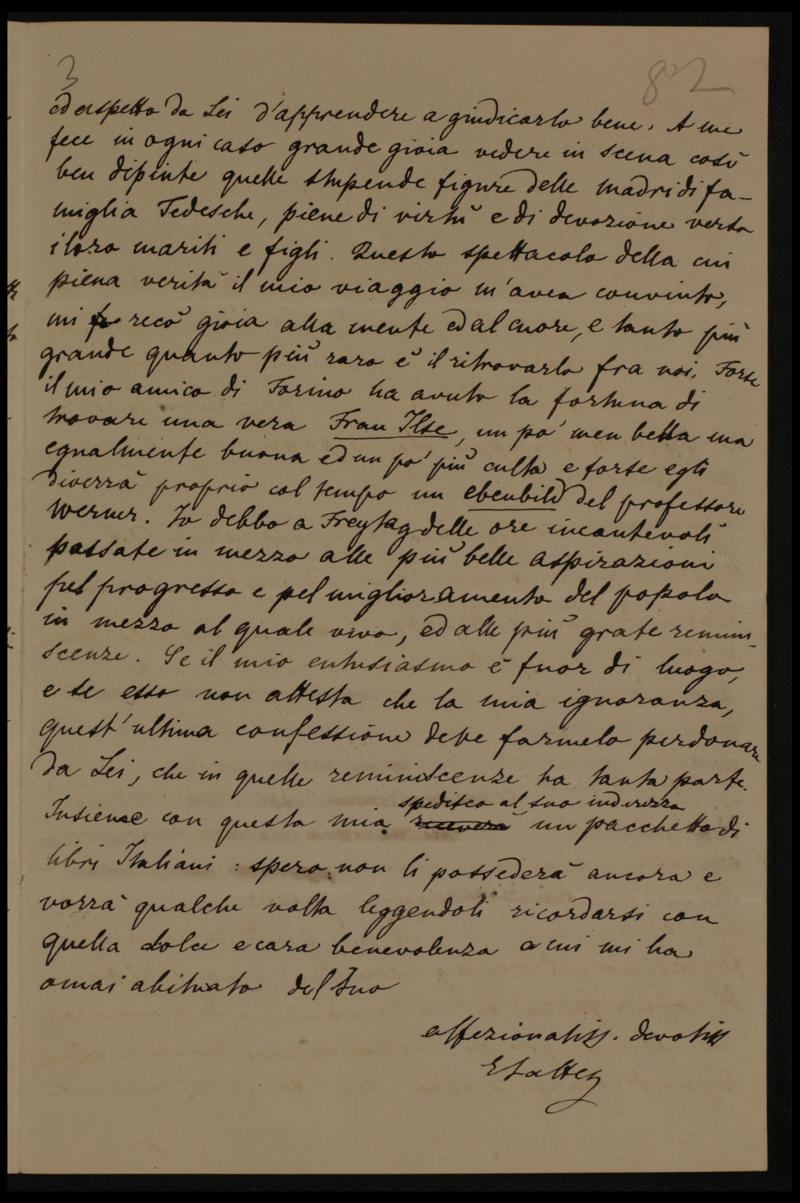 3 82
ed aspetto da Lei d'apprendere a giudicarlo bene. A me
fece in ogni caso grande gioia vedere in scena così
ben dipinte quelle stupende figure delle madri di fa-
miglia Tedesche, piene di virtù e di devozione verso
i loro mariti e figli. Questo spettacolo della cui
piena verità il mio viaggio m'avea convinto,
mi recò gioia alla mente ed al cuore, e tanto più
grande quanto più raro è il ritrovarlo fra noi. Forse
il mio amico di Torino ha avuto la fortuna di
trovare una vera Frau Ilse, un po' men bella ma
egualmente buona ed un po' più culta e forse egli
diverrà proprio col tempo un ebenbild del professore
Werner. Io debbo a Freytag delle ore incantevoli
passate in mezzo alle più belle aspirazioni
pel progresso e pel miglioramento del popolo
in mezzo al quale vivo, ed alle più grate remini-
scenze. Se il mio entusiasmo è fuor di luogo,
e se esso non attesta che la mia ignoranza,
quest'ultima confessione deve farmelo perdonare
da Lei, che in quelle reminiscenze ha tanta parte.
spedisco al suo indirizzo
Insieme con questa mia riceverà un pacchetto di
libri Italiani: spero non li possederà ancora e
vorrà qualche volta leggendoli ricordarsi con
quella dolce e cara benevolenza a cui mi ha
omai abituato del Suo
affezionatiss. devotiss